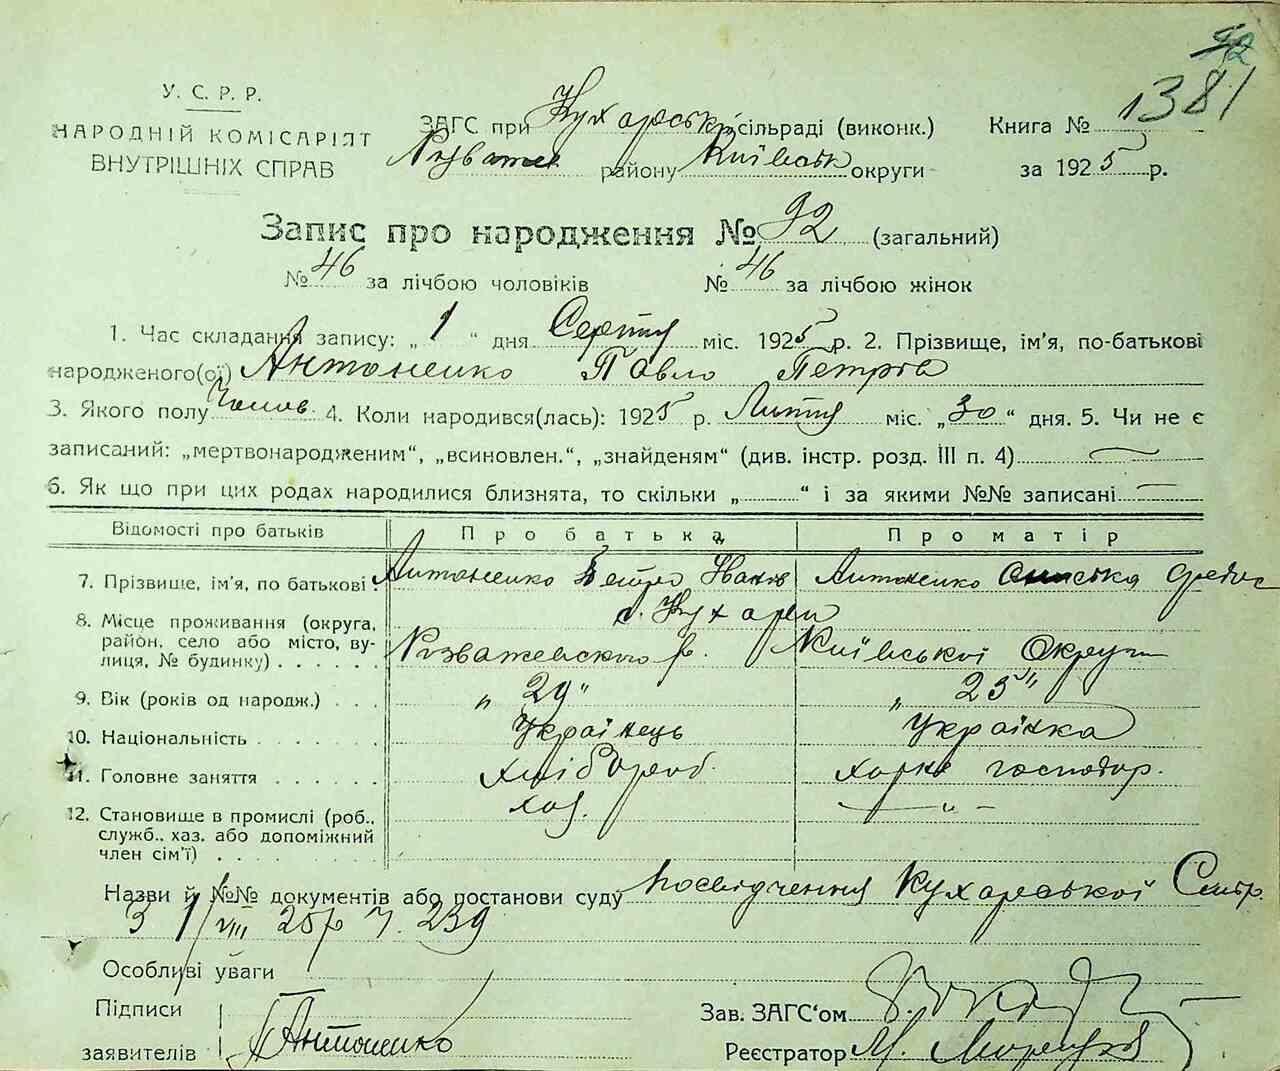 52
1381
У. С. Р. Р.
НАРОДНІЙ КОМІСАРІЯТ
ВНУТРІШНІХ СПРАВ
ЗАГС при Кухарській сільраді (виконк.) Книга №
району Київськ округи за 1925 р.
Запис про народження № 92 (загальний)
№ 46 за лічбою чоловіків № 46 за лічбою жінок
1. Час складання запису: „ 1 “ дня Серпня міс. 1925 р. 2. Прізвище, ім'я, по-батькові
народженого(ої) Антоненко Павло Петрів
3. Якого полу Чолов. 4. Коли народився(лась): 1925 р. Липня міс. „30“ дня. 5. Чи не є
записаний: „мертвонародженим“, „всиновлен.“, „знайденям“ (див. інстр. розд. III п. 4)
6. Як що при цих родах народилися близнята, то скільки „ “ і за якими №№ записані
Відомості про батьків Про батька Про матір
7. Прізвище, ім'я, по батькові: Антоненко Петро Іванів Антоненко
8. Місце проживання (округа, с. Кухари
район, село або місто, ву-
лиця, № будинку) Розважевского р. Київської Округи
9. Вік (років од народж.) „ 29 “ „ 25 “
10. Національність Українець Українка
11. Головне заняття хлібороб. господар.
12. Становище в промислі (роб., хаз. — „ —
служб., хаз. або допоміжний
член сім'ї)
Назви й №№ документів або постанови суду посвідчення Кухарської
З 1/VIII 25р ч. 239
Особливі уваги
Підписи
заявителів П Антоненко
Зав. ЗАГС'ом
Реєстратор М.